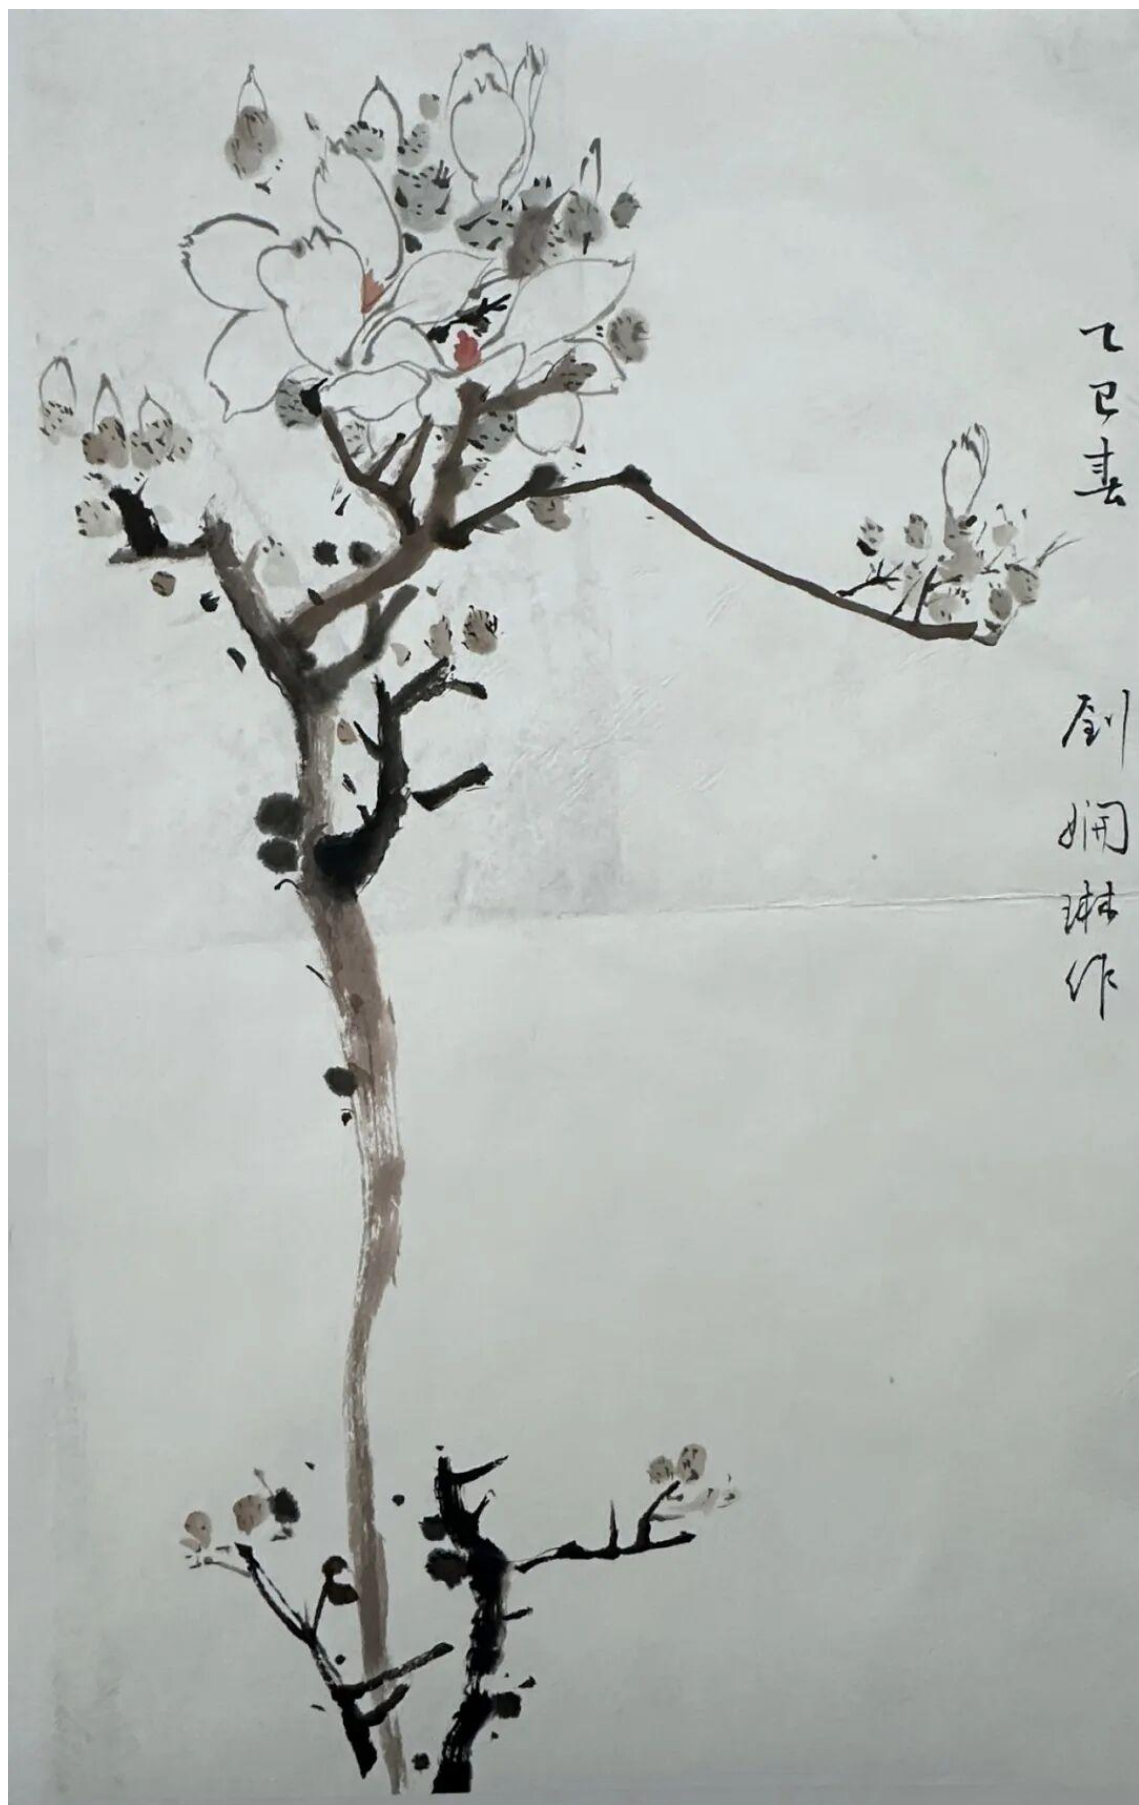 乙巳春
刘娴琳作